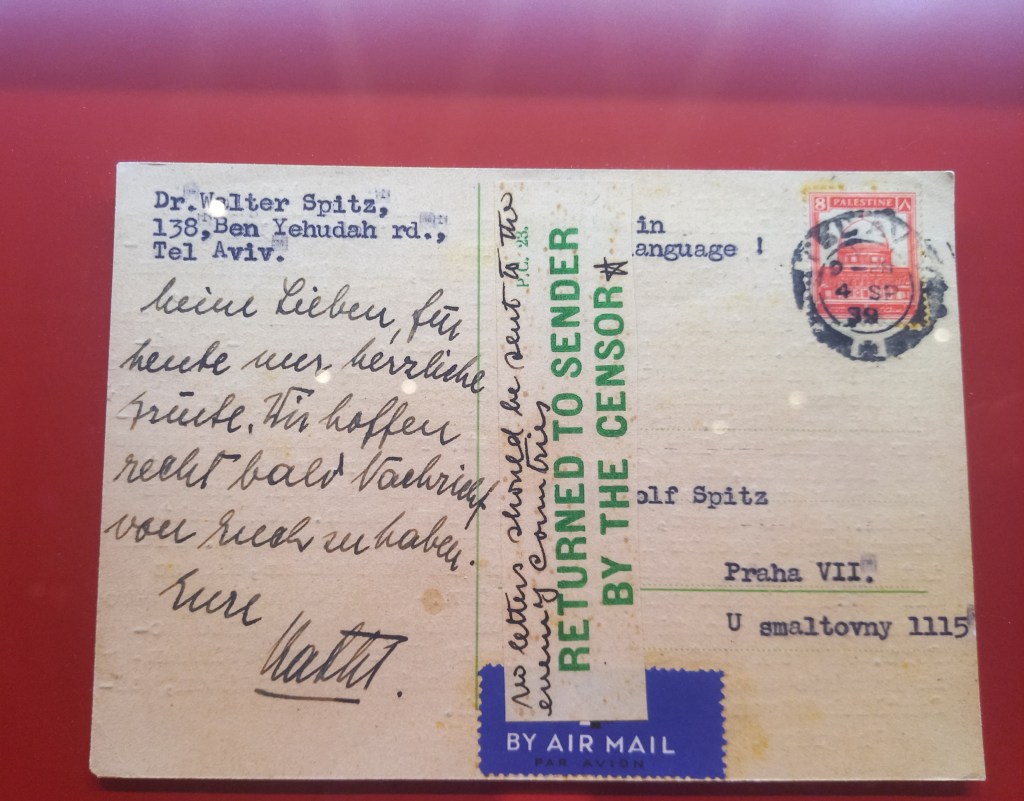 Dr.Walter Spitz,
138,Ben Yehudah rd.,
Tel Aviv.
Meine Lieben, für
heute nur herzliche
Grüße. Wir hoffen
recht bald Nachricht
von Euch zu haben.
Eure
P.C. 23.
no letters should be sent to the
enemy countries
RETURNED TO SENDER
BY THE CENSOR
in
anguage !
8 PALESTINE ٨
4 SP
39
olf Spitz
Praha VII.
U smaltovny 1115
BY AIR MAIL
PAR AVION